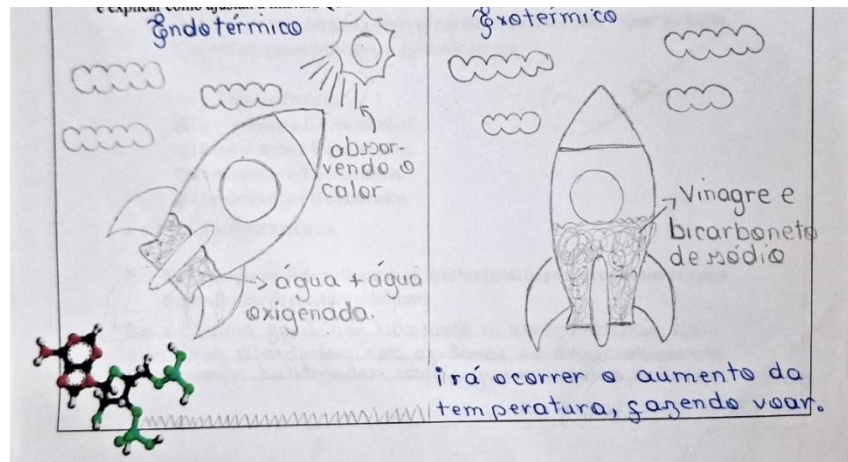 e explicar como ajustar a
Endotérmico
absor-
vendo o
calor
água + água
oxigenada.
Exotérmico
Vinagre e
bicarboneto
de sódio
irá ocorrer o aumento da
temperatura, fazendo voar.